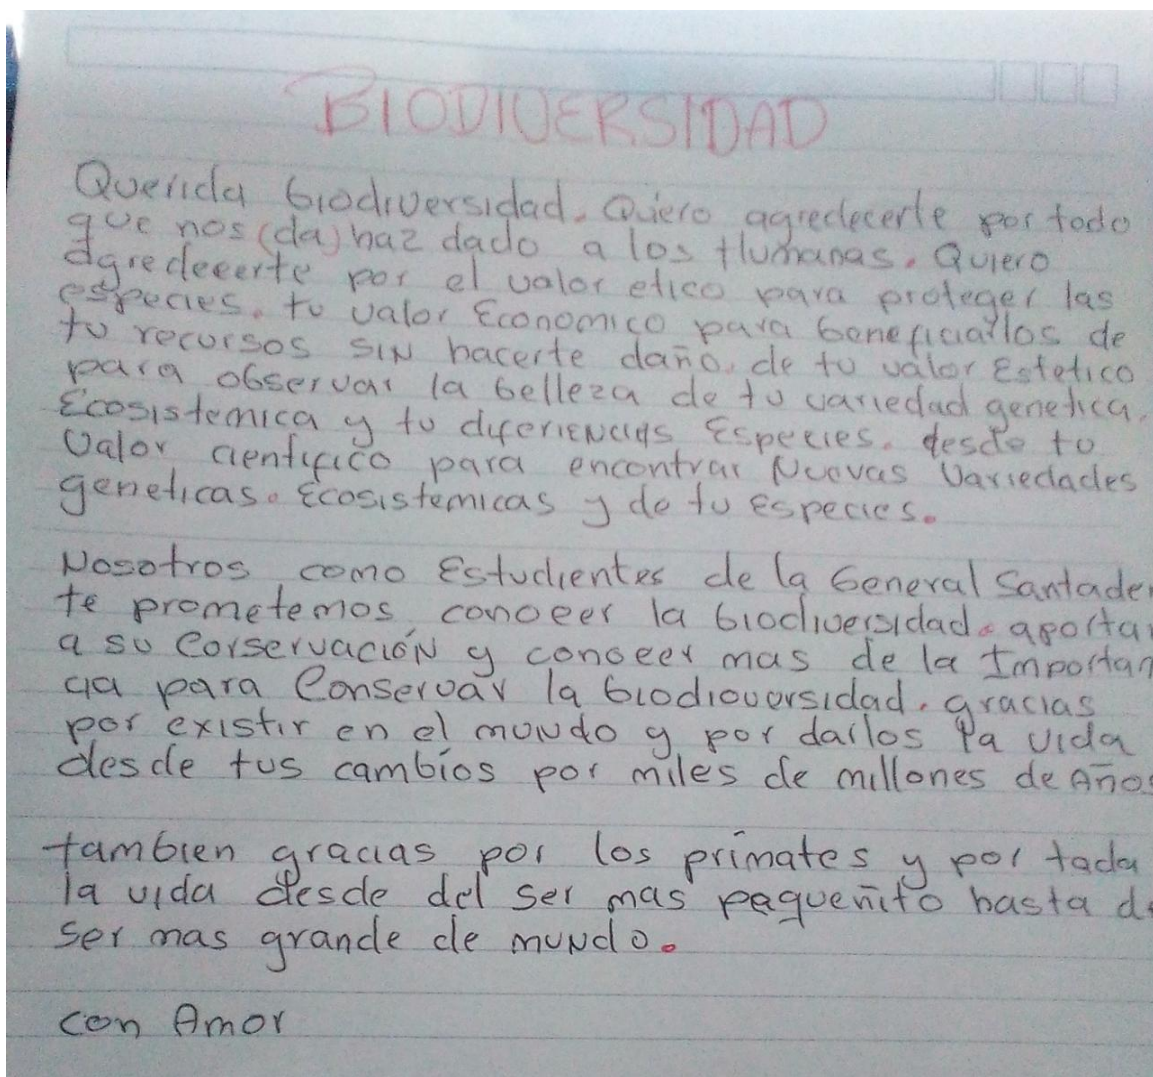 BIODIVERSIDAD
Querida biodiversidad. Quiero agredecerte por todo
que nos (da) haz dado a los Humanas. Quiero
agredecerte por el valor etico para proteger las
especies. tu valor Economico para beneficiarlos de
tu recursos SIN hacerte daño. de tu valor Estetico
para observar la belleza de tu variedad genetica.
Ecosistemica y tu diferiencias Especies. desde tu
Valor cientifico para encontrar Nuevas Variedades
geneticas. Ecosistemicas y de tu especies.
Nosotros como Estudientes de la General Santader
te prometemos conocer la biodiversidad. aportar
a su Corservación y conocer mas de la Importan
cia para Conservar la biodioversidad. gracias
por existir en el mundo y por darlos la vida
desde tus cambios por miles de millones de Años
tambien gracias por los primates y por tada
la vida desde del ser mas paqueñito hasta de
ser mas grande de mundo.
con Amor